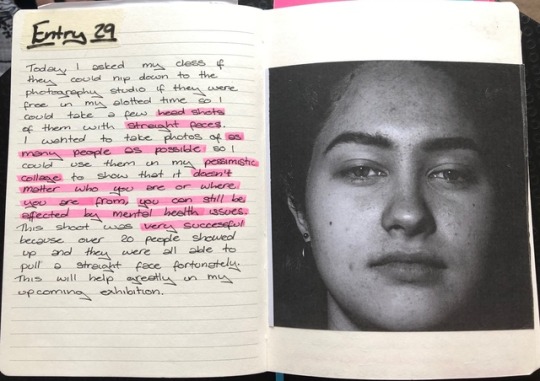 Entry 29
Today I asked my class if
they could nip down to the
photography studio if they were
free in my alotted time so I
could take a few head shots
of them with straight faces.
I wanted to take photos of as
many people as possible so I
could use them in my pessimistic
collage to show that it doesn't
matter who you are or where
you are from, you can still be
affected by mental health issues.
This shoot was very successful
because over 20 people showed
up and they were all able to
pull a straight face fortunately.
This will help greatly in my
upcoming exhibition.